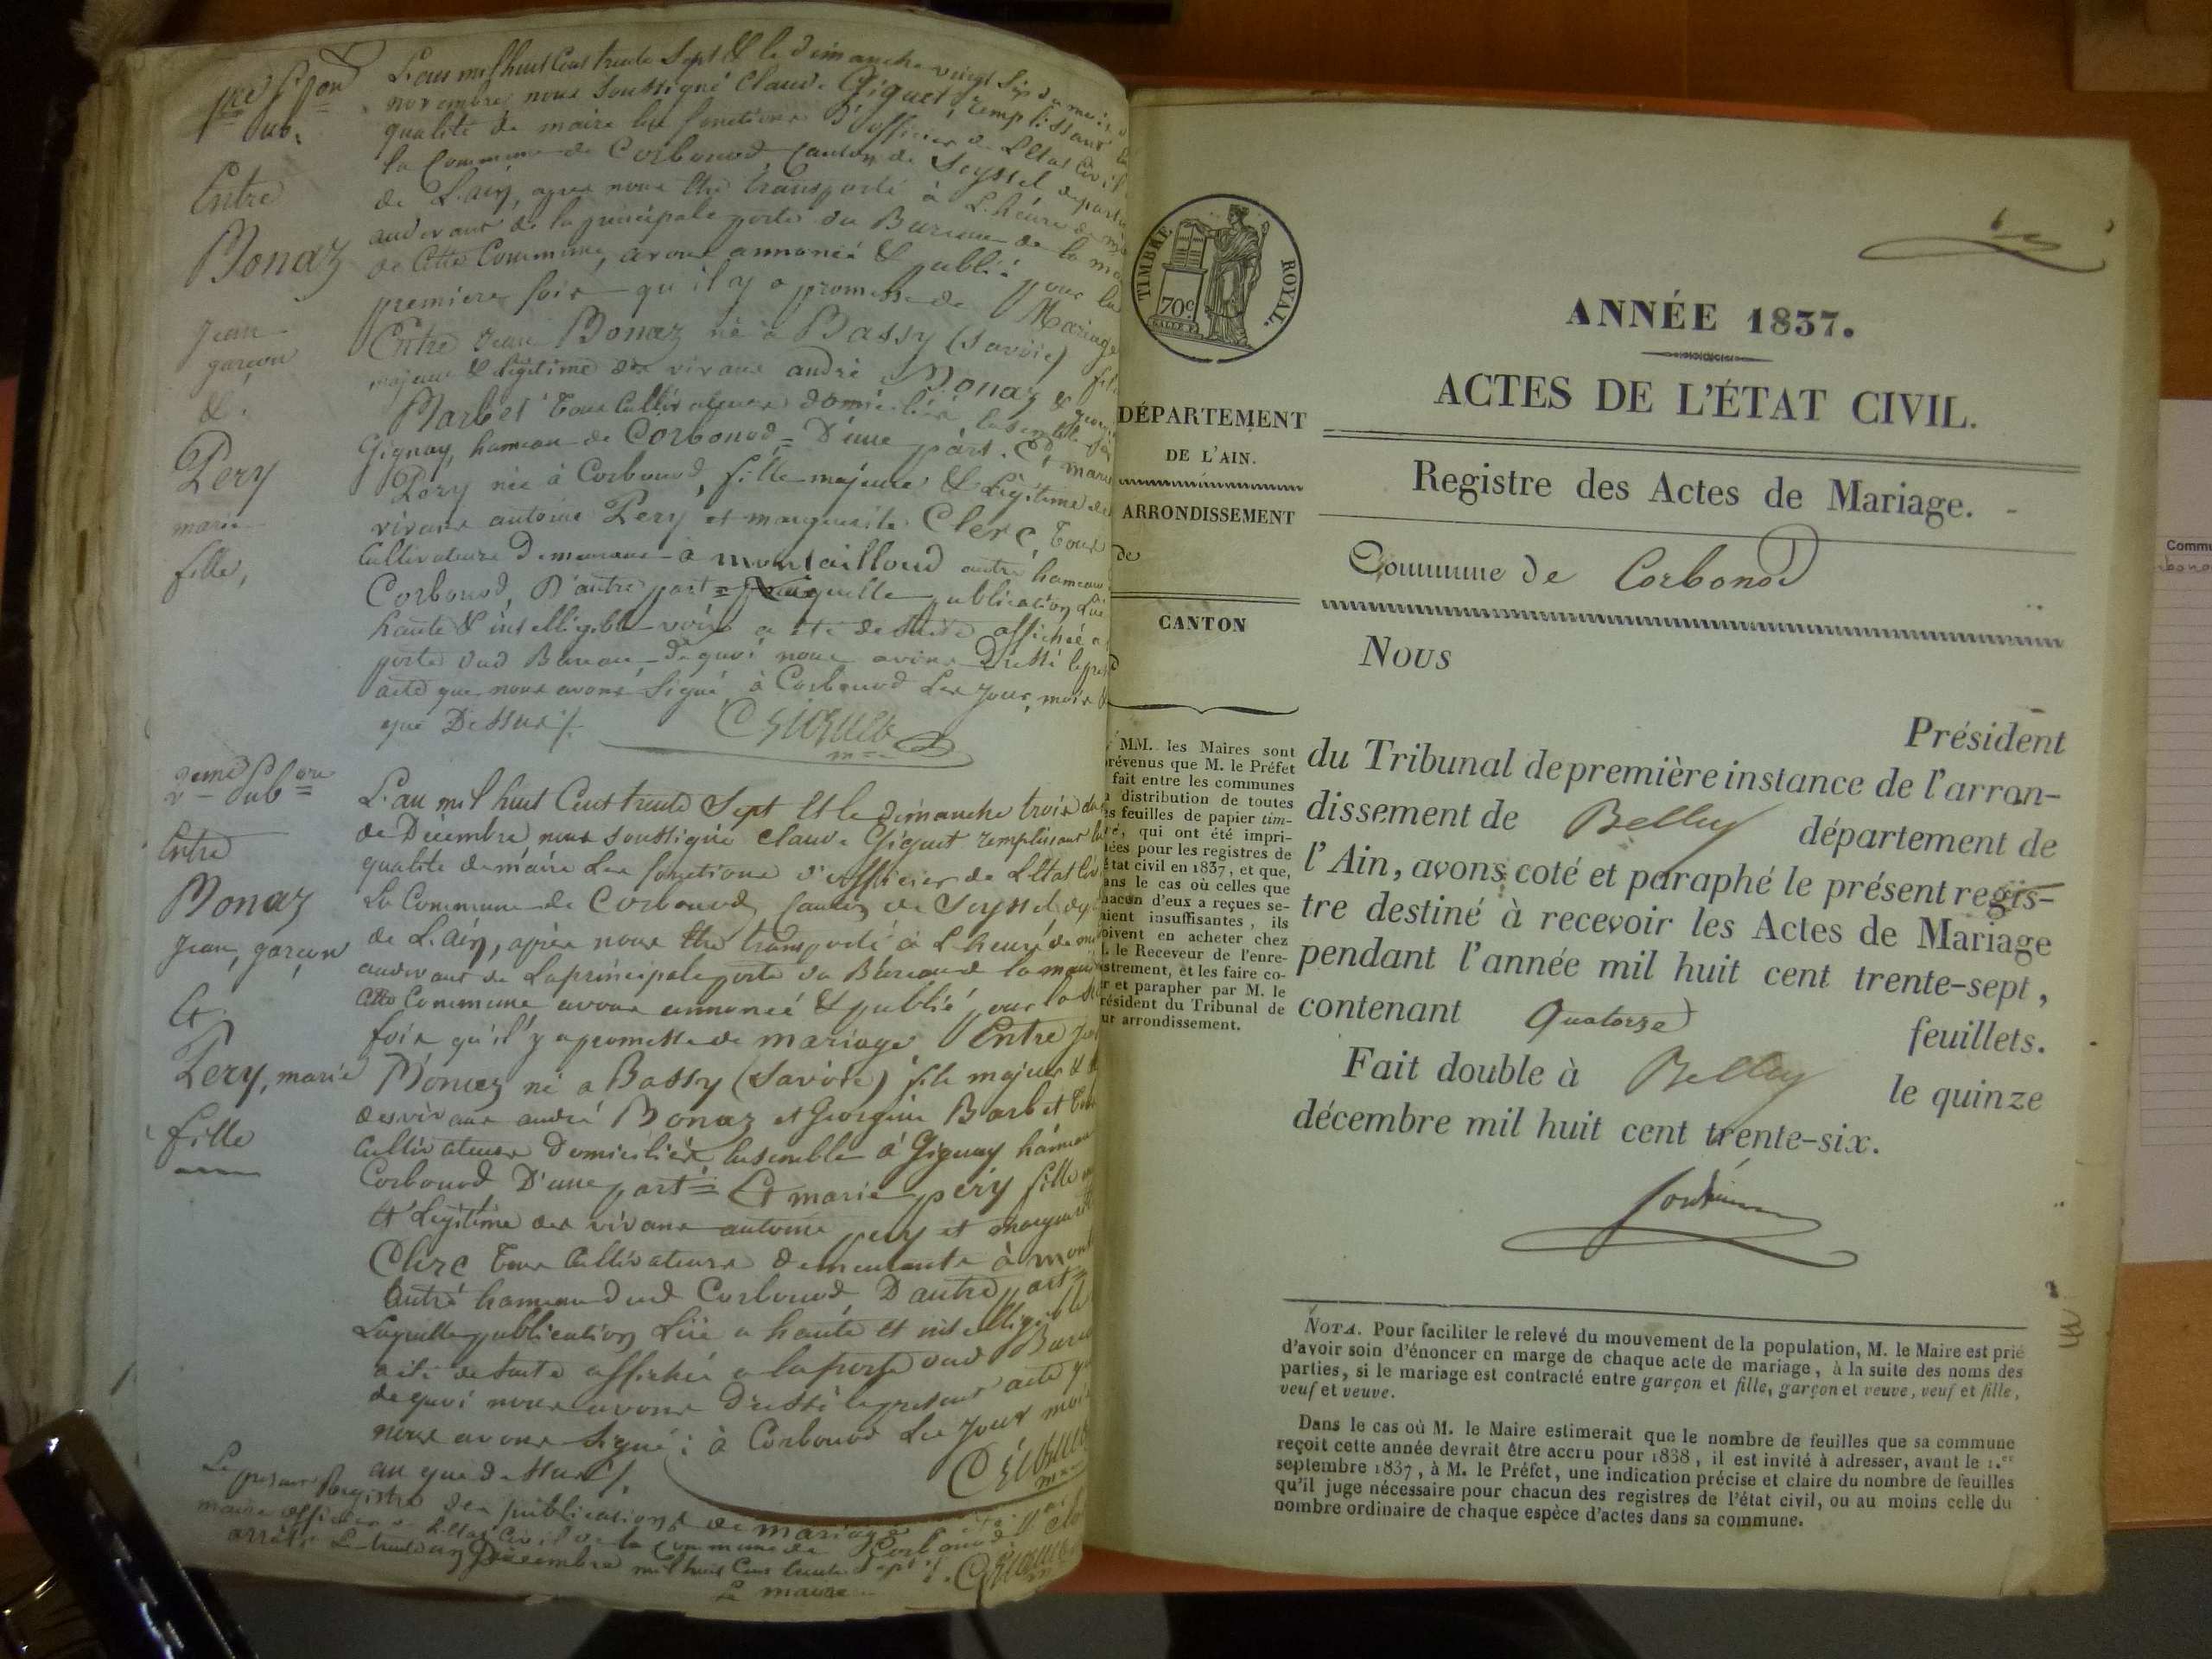 1re P.on
Pub.
Entre
Bonaz
Jean
garçon
&
Pery
marie
fille,
L'an mil huit Cent trente Sept & le dimanche vingt Six du mois
novembre, nous Soussigné Claude Giguet, remplissant
qualité de maire les fonctions d'officier de L'Etat Civil
la Commune de Corbonod, Canton de Seyssel, départ
de L'ain, après nous être transporté à L'heure de mi
audevant de la principale porte du Bureau de la m
de Cette Commune, avons annoncé & publié pour la
première fois qu'il y a promesse de Mariage
Entre Jean Bonaz né à Bassy (Savoie) fils
majeur & légitime des vivans andré Bonaz &
Barbet tous Cultivateurs domiciliés Ensemble
Gignay, hameau de Corbonod = D'une part. Et marie
Pery née à Corbonod, fille majeure & Légitime des
vivans antoine Pery et marguerite Clerc tous
Cultivateurs Demeurans à montailloud autre hameau
Corbonod, D'autre part = Laquelle publication Lue
haute & intelligible voix a été de Suite affichée a
porte dud Bureau De quoi nous avons Dressé le pres
acte que nous avons Signé à Corbonod Les Jour, mois &
que Dessus /.
C Giguet
m
2eme Pub.on
Entre
Bonaz
Jean, garçon
Et
Pery, marie
fille
L'an mil huit Cent trente Sept Et le dimanche trois du
de Décembre, nous soussigné Claude Giguet remplissant
qualité de maire Les fonctions d'officier de L'Etat Civ
La Commune de Corbonod, Canton de Seyssel, dep
de L'ain, après nous être transporté à L'heure de mi
audevant de La principale porte du Bureau de la mai
Cette Commune avons annoncé & publié pour la
fois qu'il y a promesse de mariage Entre Je
Bonaz né a Bassy (Savoie) fils majeur &
des vivans andré Bonaz et Georgine Barbet
Cultivateurs Domiciliés Ensemble à Gignay hameau
Corbonod D'une part = Et marie péry fille
& Légitime des vivans antoine pery et marguerite
Clerc tous Cultivateurs demeurants à mont
autre hameau dud Corbonod D'autre part =
Laquelle publication Lue a haute et intelligible
a été de Suite affichée a la porte dud Bure
de quoi nous avons Dressé le present acte q
nous avons Signé : à Corbonod Les Jour mois
an que dessus /.
C Giguet
m
Le present Registre des publications de mariage a été
maire officier de L'Etat Civil de la Commune de Corbonod
arrêté Le trente un Décembre mil huit Cent trente Sept /. C Giguet
Le maire
TIMBRE ROYAL.
70c
ANNÉE 1837.
ACTES DE L'ÉTAT CIVIL.
DÉPARTEMENT
DE L'AIN.
ARRONDISSEMENT
de
CANTON
Registre des Actes de Mariage.
Commune de Corbonod
Nous
Président
du Tribunal de première instance de l'arron-
dissement de Belley département de
l'Ain, avons coté et paraphé le présent regis-
tre destiné à recevoir les Actes de Mariage
pendant l'année mil huit cent trente-sept,
contenant Quatorze feuillets.
Fait double à Belley le quinze
décembre mil huit cent trente-six.
MM. les Maires sont
prévenus que M. le Préfet
fait entre les communes
distribution de toutes
es feuilles de papier tim-
ré, qui ont été impri-
mées pour les registres de
état civil en 1837, et que,
ans le cas où celles que
hacun d'eux a reçues se-
aient insuffisantes, ils
oivent en acheter chez
. le Receveur de l'enre-
istrement, et les faire co-
r et parapher par M. le
résident du Tribunal de
ur arrondissement.
NOTA. Pour faciliter le relevé du mouvement de la population, M. le Maire est prié
d'avoir soin d'énoncer en marge de chaque acte de mariage, à la suite des noms des
parties, si le mariage est contracté entre garçon et fille, garçon et veuve, veuf et fille,
veuf et veuve.
Dans le cas où M. le Maire estimerait que le nombre de feuilles que sa commune
reçoit cette année devrait être accru pour 1838, il est invité à adresser, avant le 1.er
septembre 1837, à M. le Préfet, une indication précise et claire du nombre de feuilles
qu'il juge nécessaire pour chacun des registres de l'état civil, ou au moins celle du
nombre ordinaire de chaque espèce d'actes dans sa commune.
Commu